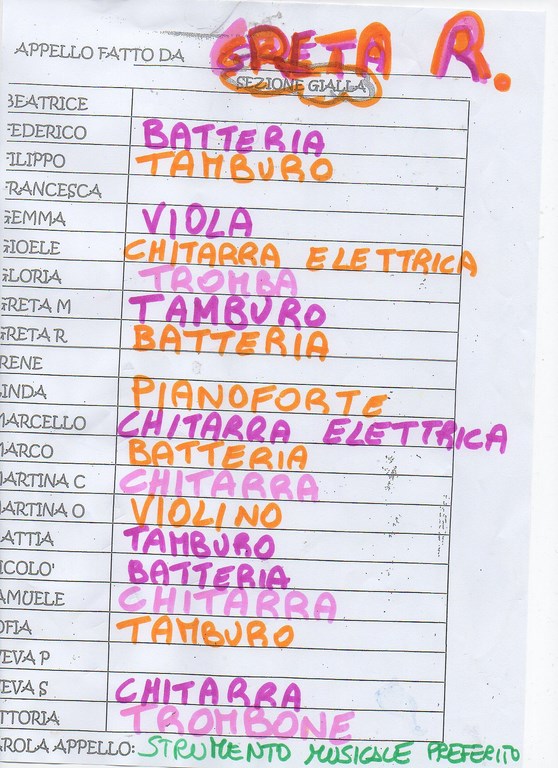 APPELLO FATTO DA GRETA R.
SEZIONE GIALLA
BEATRICE
FEDERICO BATTERIA
FILIPPO TAMBURO
FRANCESCA
GEMMA VIOLA
GIOELE CHITARRA ELETTRICA
GLORIA TROMBA
GRETA M TAMBURO
GRETA R BATTERIA
RENE
INDA PIANOFORTE
MARCELLO CHITARRA ELETTRICA
MARCO BATTERIA
MARTINA C CHITARRA
MARTINA O VIOLINO
ATTIA TAMBURO
ICOLO' BATTERIA
AMUELE CHITARRA
OFIA TAMBURO
EVA P
EVA S CHITARRA
TTORIA TROMBONE
AROLA APPELLO: STRUMENTO MUSICALE PREFERITO